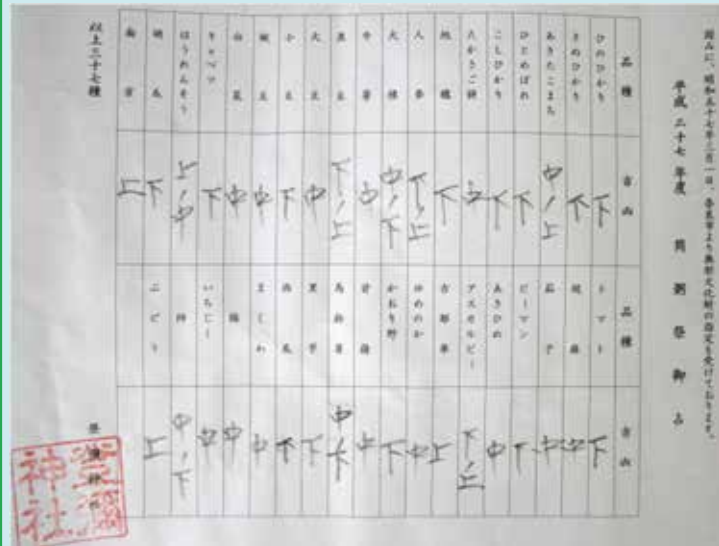 因みに、昭和五十七年三月一日、奈良市より無形文化財の指定も受けております。
平成二十七年度 筒粥祭御占
品種 吉凶 品種 吉凶
ひのひかり 下 トマト 下
きぬひかり 下 胡麻 中
あきたこまち 中ノ上 茄子 中
ひとめぼれ 下 ピーマン 下
こしひかり 下 あきひめ 中
たかさご餅 中 アスカルビー 下ノ上
旭糯 下 古都華 上
人参 下ノ上 ゆめのか 中
大根 中ノ下 かおり野 下
牛蒡 中 甘藷 中
黒豆 下ノ上 馬鈴薯 中ノ下
大豆 中 里芋 下
小豆 下 西瓜 下
豌豆 中 まくわ 中
白菜 中 梅 中
キャベツ 下 いちじく 中
ほうれんそう 上ノ中 柿 中ノ下
胡瓜 下 ぶどう 上
南京 上
以上三十七種 登彌神社
登彌神社